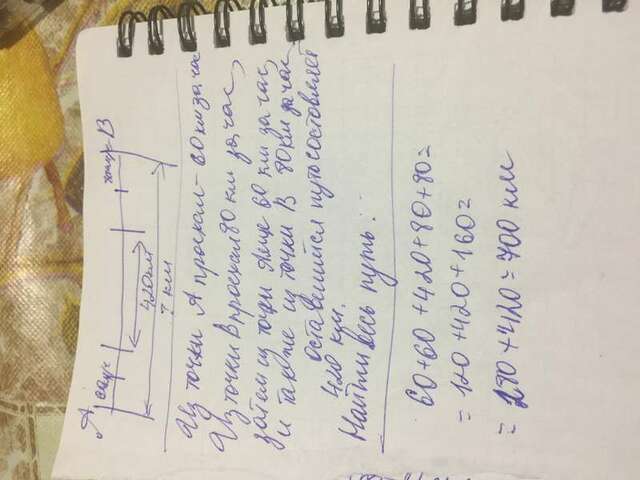 A
B
420 км
? км
Из точки А проехал - 60 км за час
Из точки В проехал 80 км за час,
затем из точки А еще 60 км за час,
и также из точки В 80 км за час,
оставшийся путь составляет
420 км.
Найти весь путь.
60+60+420+80+80=
=120+420+160=
=280+420=700 км